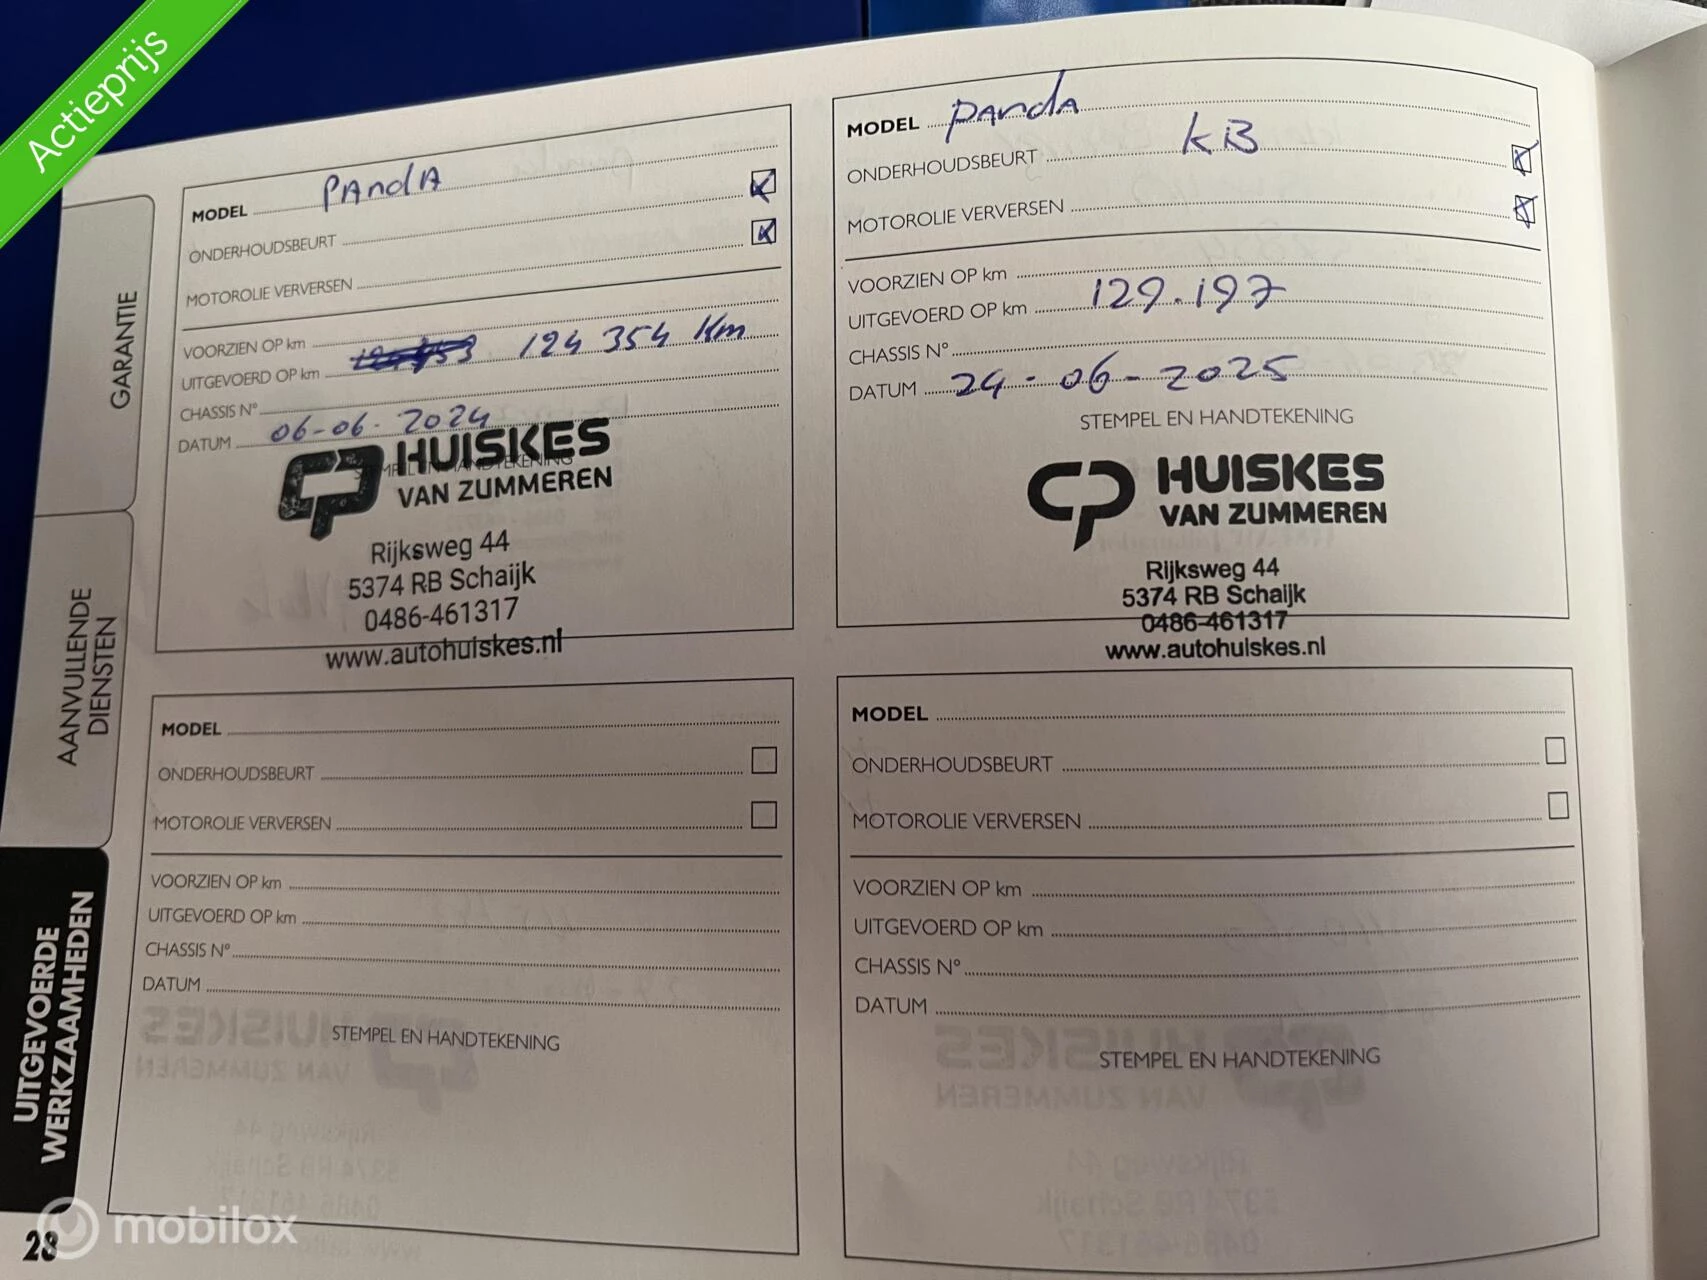 Actieprijs
GARANTIE
AANVULLENDE
DIENSTEN
UITGEVOERDE
WERKZAAMHEDEN
MODEL PAndA
ONDERHOUDSBEURT
MOTOROLIE VERVERSEN
VOORZIEN OP km
UITGEVOERD OP km 124 354 Km
CHASSIS N°
DATUM 06-06-2024
HUISKES
VAN ZUMMEREN
Rijksweg 44
5374 RB Schaijk
0486-461317
www.autohuiskes.nl
MODEL PAndA
ONDERHOUDSBEURT KB
MOTOROLIE VERVERSEN
VOORZIEN OP km
UITGEVOERD OP km 129.197
CHASSIS N°
DATUM 24-06-2025
STEMPEL EN HANDTEKENING
HUISKES
VAN ZUMMEREN
Rijksweg 44
5374 RB Schaijk
0486-461317
www.autohuiskes.nl
MODEL
ONDERHOUDSBEURT
MOTOROLIE VERVERSEN
VOORZIEN OP km
UITGEVOERD OP km
CHASSIS N°
DATUM
STEMPEL EN HANDTEKENING
MODEL
ONDERHOUDSBEURT
MOTOROLIE VERVERSEN
VOORZIEN OP km
UITGEVOERD OP km
CHASSIS N°
DATUM
STEMPEL EN HANDTEKENING
28
mobilox